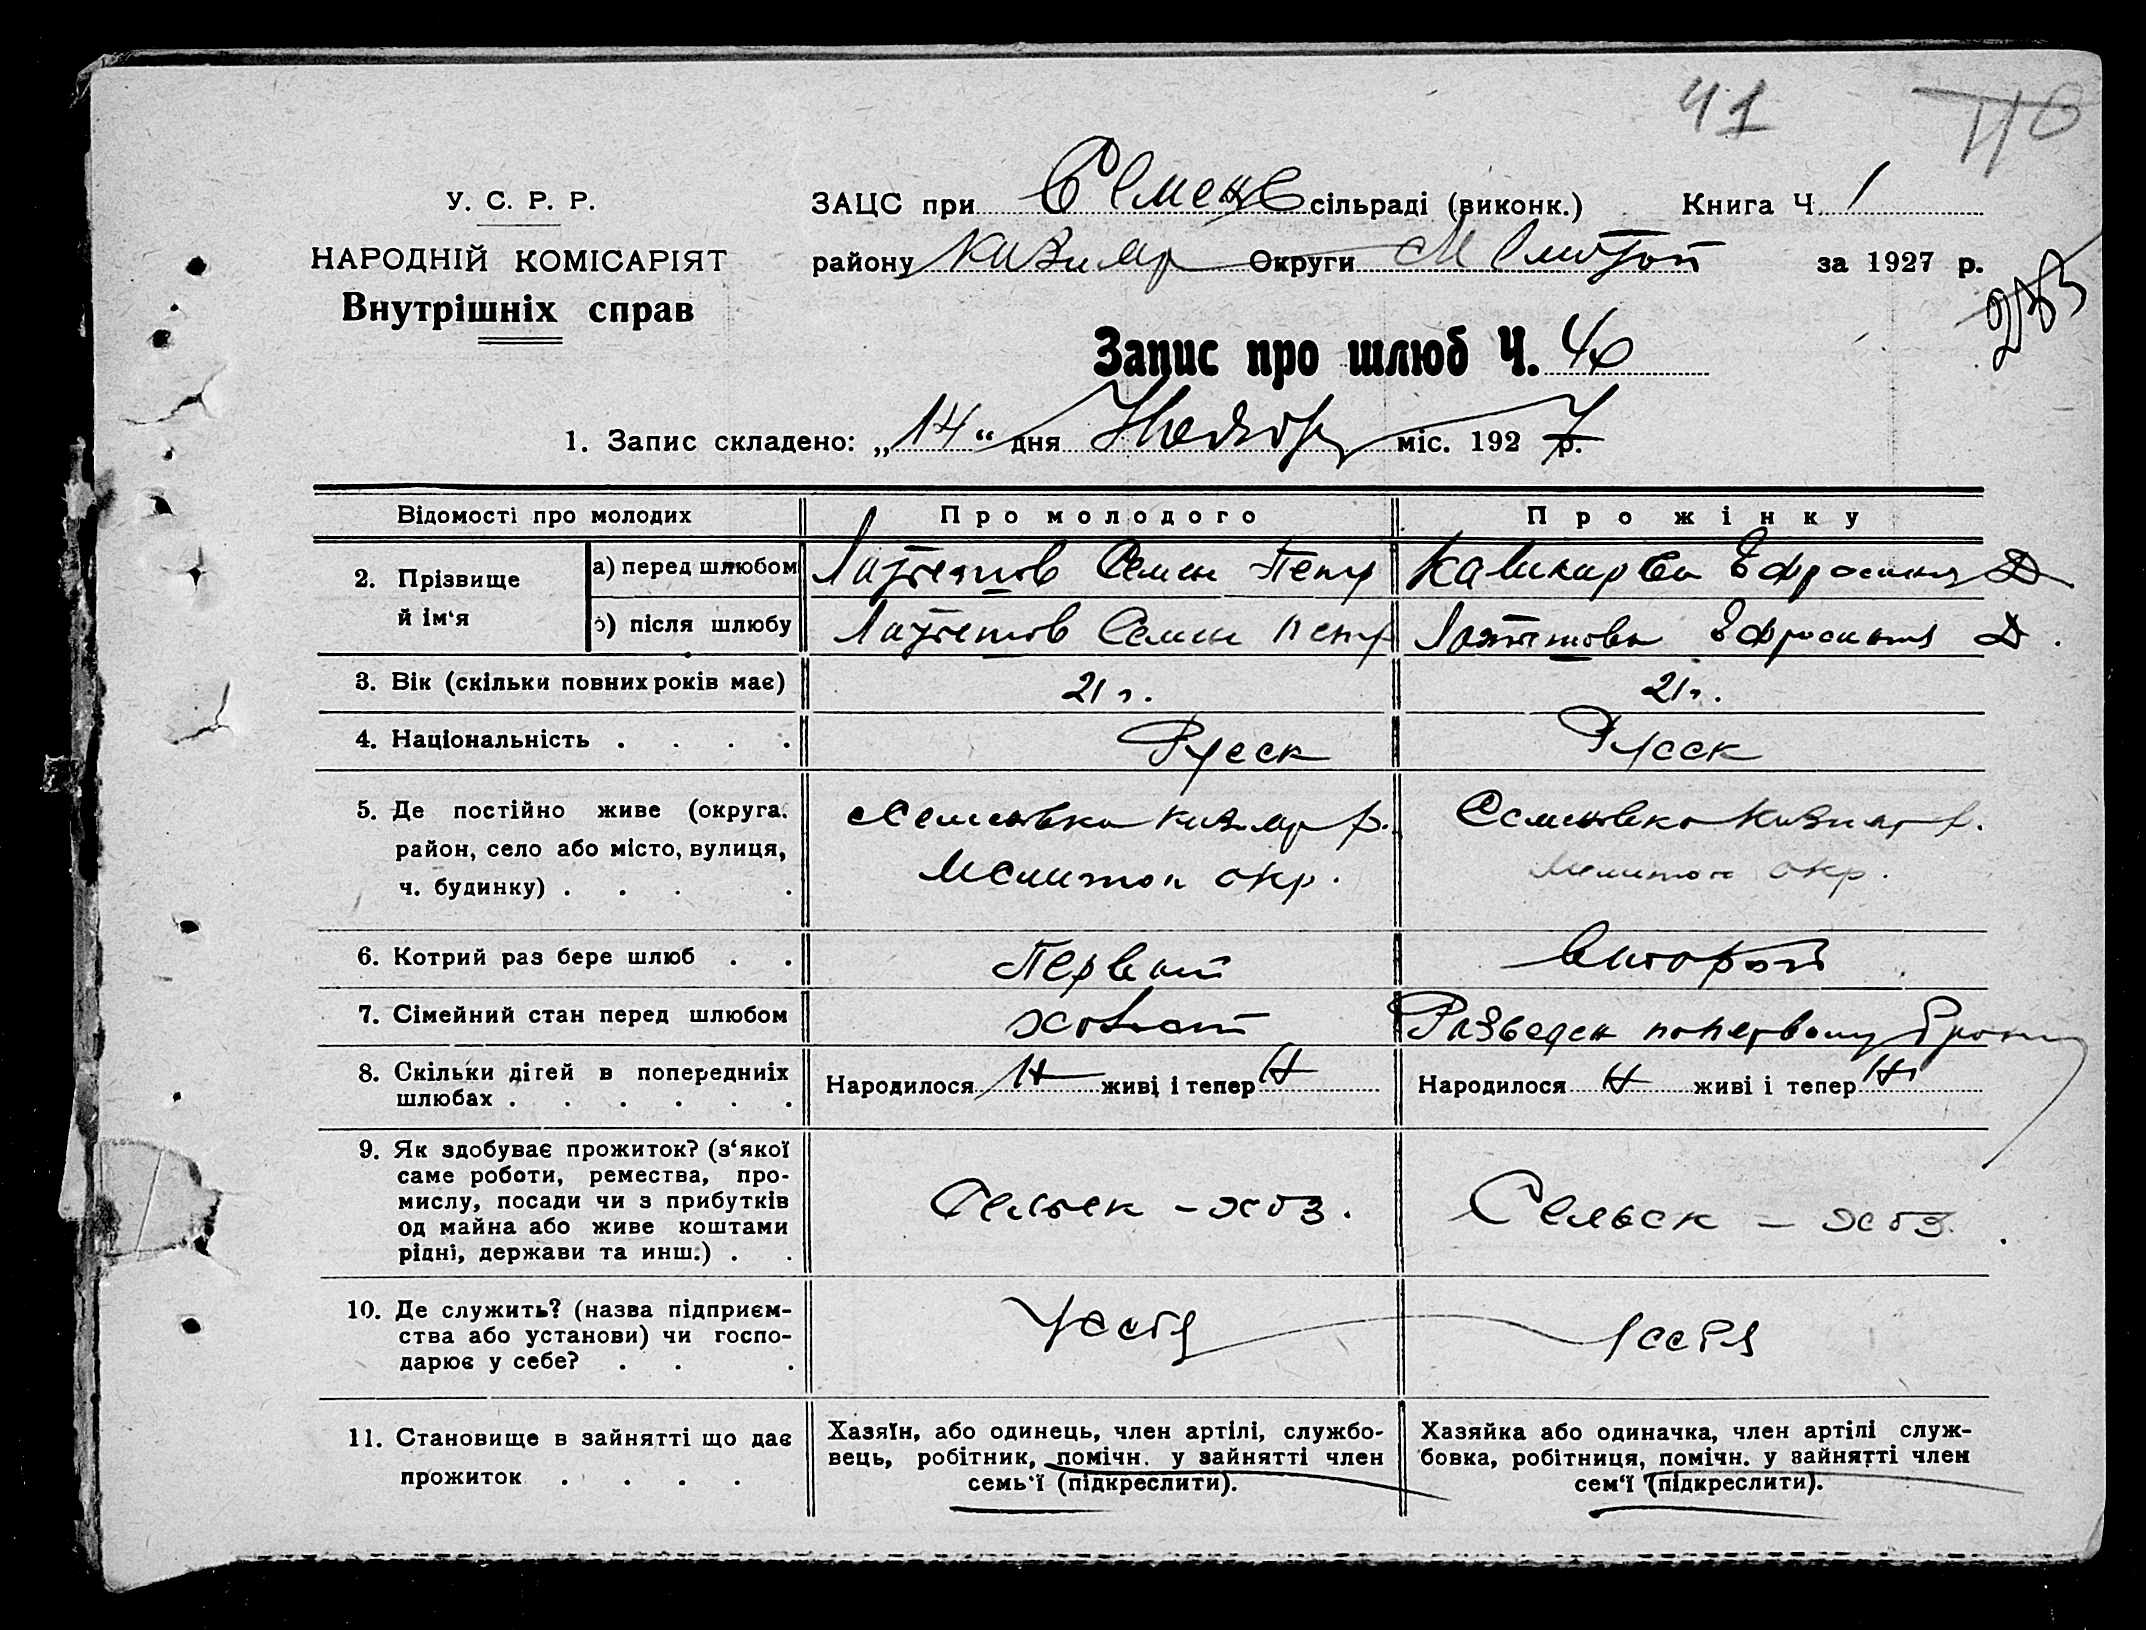 41
У. С. Р. Р.
НАРОДНІЙ КОМІСАРІЯТ
Внутрішніх справ
ЗАЦС при Семен сільраді (виконк.) Книга Ч. 1
району Кизияр Округи Мелитоп за 1927 р.
Запис про шлюб Ч. 40
1. Запис складено: „14“ дня міс. 1927 р.
Відомості про молодих Про молодого Про жінку
2. Прізвище й ім‘я
а) перед шлюбом Семен Петр Ефросиния Д
б) після шлюбу Семен Петр Ефросиния Д.
3. Вік (скільки повних років має) 21 г. 21 г.
4. Національність . . . . Русск Русск
5. Де постійно живе (округа, Семеновка Кизияр р. Семеновка Кизияр р.
район, село або місто, вулиця, Мелитоп окр. Мелитоп окр.
ч. будинку) . . . .
6. Котрий раз бере шлюб . . Первый Второй
7. Сімейний стан перед шлюбом Холост Разведен по первому
8. Скільки дітей в попередниіх Народилося Н живі і тепер Н Народилося Н живі і тепер Н
шлюбах . . . . . .
9. Як здобуває прожиток? (з‘якої
саме роботи, ремества, про-
мислу, посади чи з прибутків Сельск - хоз. Сельск - хоз.
од майна або живе коштами
рідні, держави та инш.) . .
10. Де служить? (назва підприєм-
ства або установи) чи госпо-
дарює у себе? . . .
11. Становище в зайнятті що дає
прожиток . . . .
Хазяїн, або одинець, член артілі, службо-
вець, робітник, помічн. у зайнятті член
семь‘ї (підкреслити).
Хазяйка або одиначка, член артілі служ-
бовка, робітниця, помічн. у зайнятті член
сем‘ї (підкреслити).